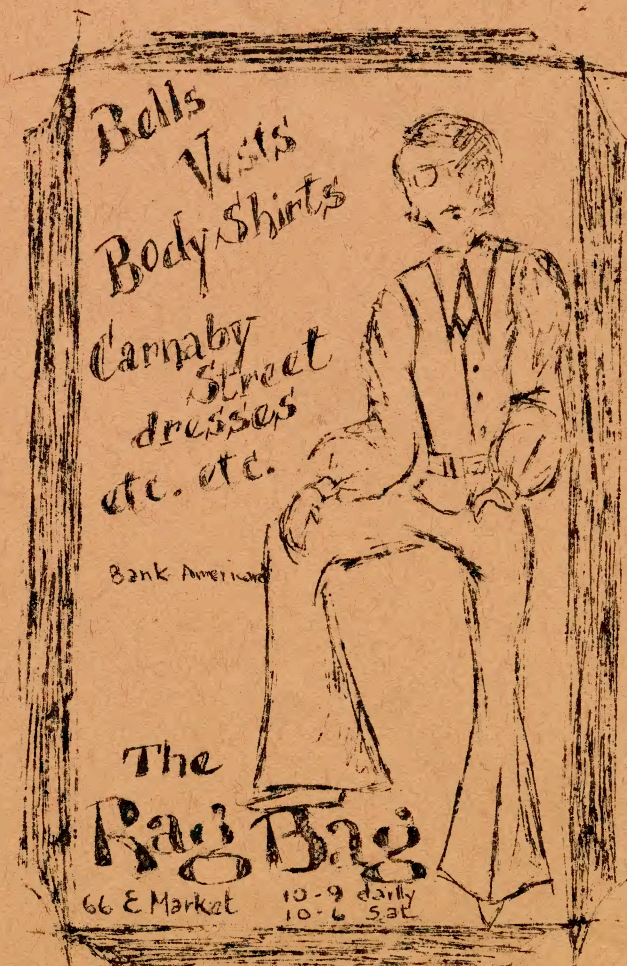 Bells
Vests
Body Shirts
Carnaby
Street
dresses
etc. etc.
Bank Americard
The
Rag Bag
66 E Market 10-9 daily
10-6 Sat